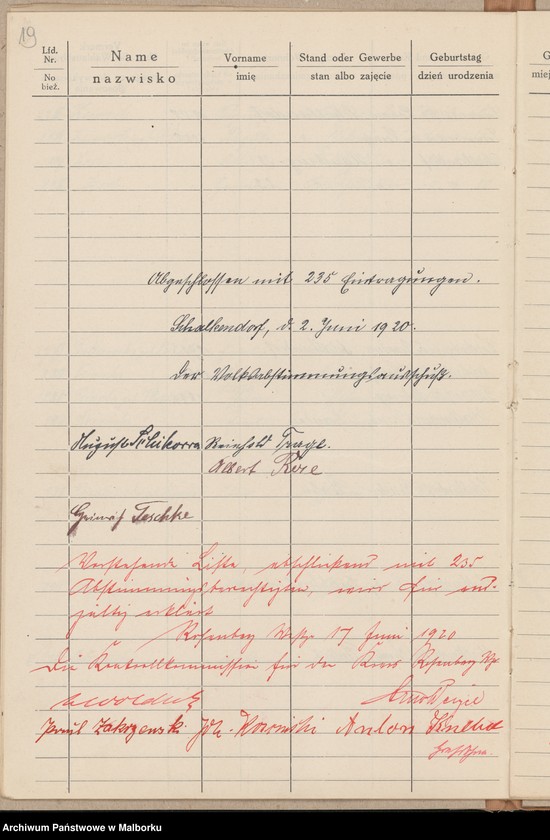 19
Lfd. Nr. Name Vorname Stand oder Gewerbe Geburtstag
No bież. nazwisko imię stan albo zajęcie dzień urodzenia
Abgeschlossen mit 235 Eintragungen.
Schalkendorf, d. 2. Juni 1920.
Der Volksabstimmungsausschuß.
August Reinhold
Albert
Heinrich Teschke
Vorstehende Liste, abschließend mit 235
Abstimmungsberechtigten, wird für end-
gültig erklärt
Rosenberg Westpr 17 Juni 1920
Die Kontrollkommission für den Kreis Rosenberg Wpr
Paul Zakrzewski Joh. Anton
Archiwum Państwowe w Malborku